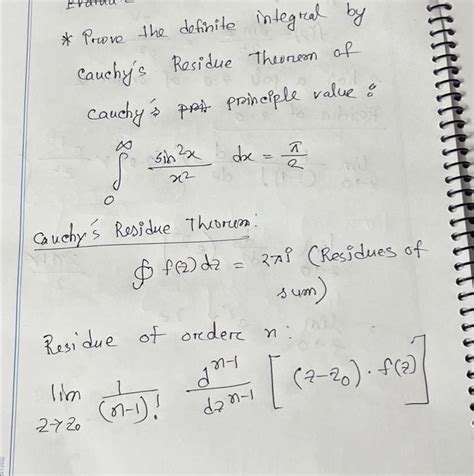 * Prove the definite integral by
Cauchy's Residue Theorem of
Cauchy's principle value :
∫₀^∞ sin²x / x² dx = π/2
Cauchy's Residue Theorem:
∮ f(z) dz = 2πi (Residues of
sum)
Residue of ordere n :
lim z→z₀ 1/(n-1)! d^(n-1)/dz^(n-1) [(z-z₀)·f(z)]